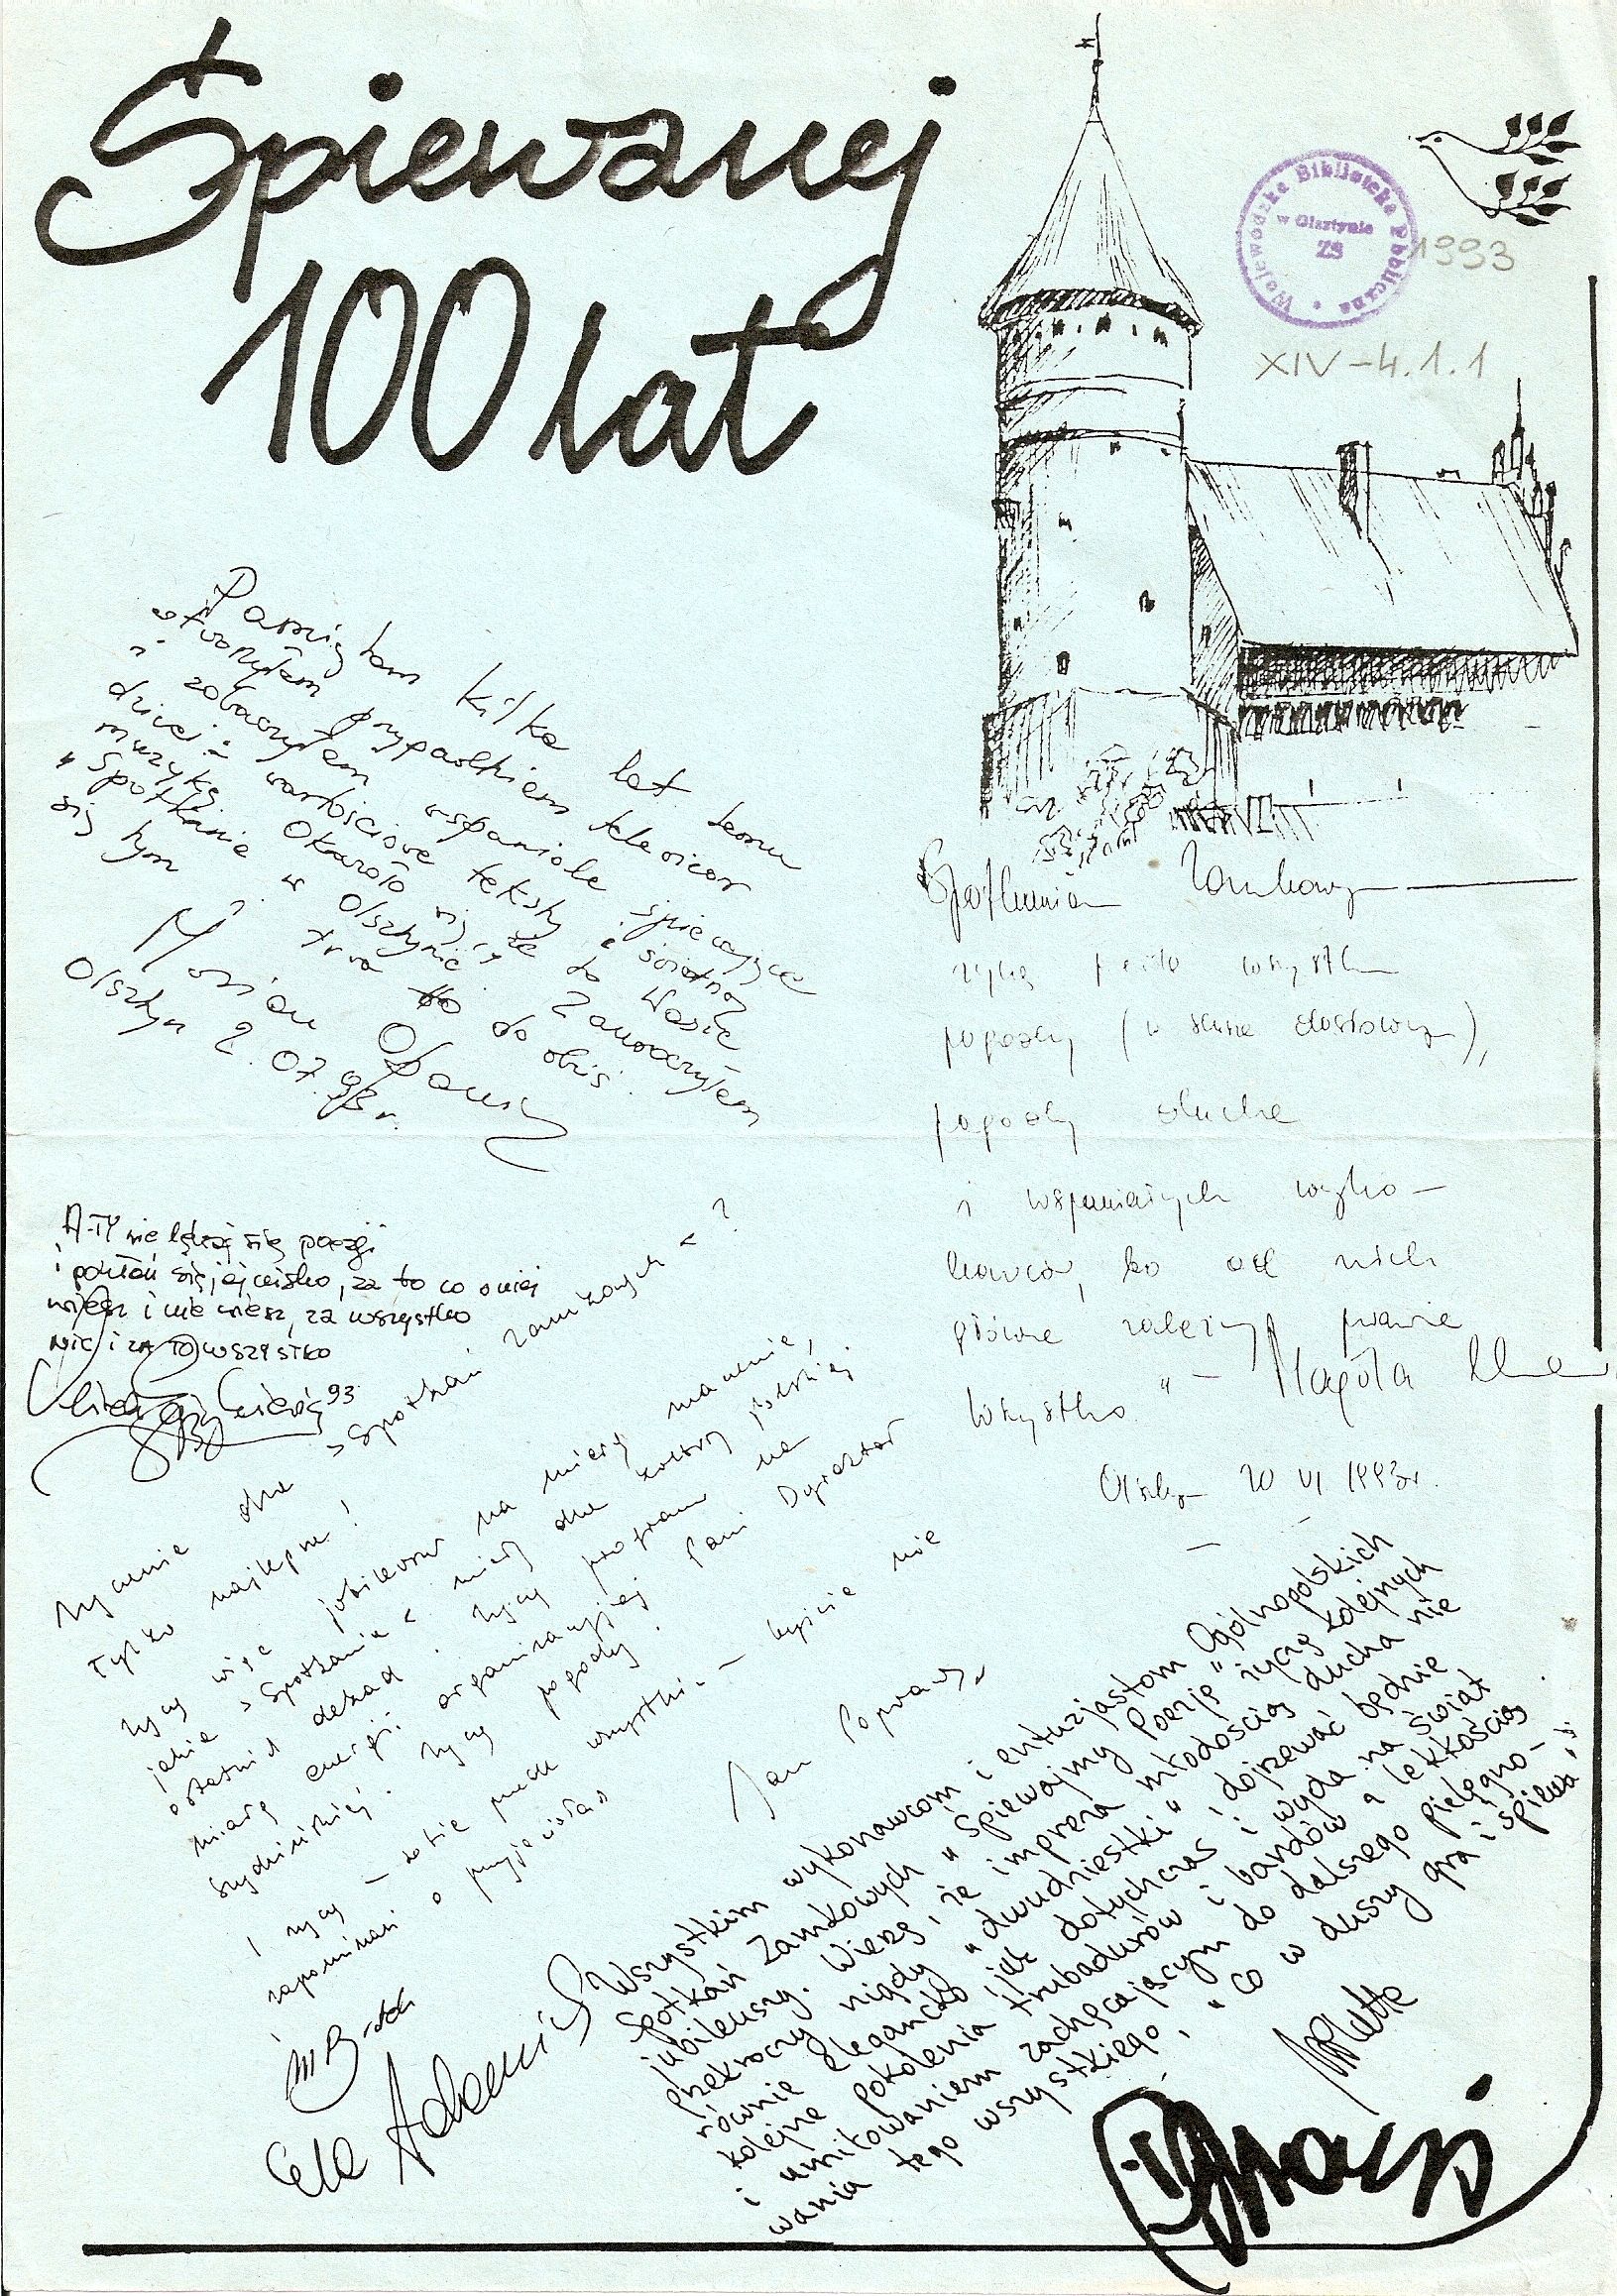 Śpiewanej
100 lat
Wojewódzka Biblioteka Publiczna
w Olsztynie
ZS
1993
XIV-4.1.1
Pamiętam kilka lat temu
otworzyłem przypadkiem telewizor
i zobaczyłem wspaniale śpiewające
dzieci: wartościowe teksty i świetną
muzykę. Okazało się, że to Wasze
"Spotkanie w Olsztynie". Zauroczyłem
się tym i trwa to do dziś.
Marian Opania
Olsztyn 2.07.93 r.
Spotkaniom Zamkowym
życzę przede wszystkim
pogody (w sensie dosłownym),
pogody ducha
i wspaniałych wyko-
nawców, bo od nich
głównie zależy prawie
wszystko" - Magda
Olsztyn 20 VI 1993r.
A-TY nie lękaj się poezji
i pokłoń się jej nisko, za to co o niej
wiesz i nie wiesz, za wszystko
nic i za TO wszystko
93
Życzenie dla "Spotkań zamkowych"?
Tylko najlepsze!
Życzę więc jubileuszu na miarę
jakie "Spotkania" miały dla kultury polskiej
ostatnich dekad. Życzę program na
miarę energii organizacyjnej Pani Dyrektor
. Życzę pogody.
I życzę sobie przede wszystkim - byście nie
zapomnieli o przyjaciołach
Jan Poprawa
Ela Adamiak
Wszystkim wykonawcom i entuzjastom Ogólnopolskich
Spotkań Zamkowych "Śpiewajmy Poezję" życzę kolejnych
jubileuszy. Wierzę, że impreza młodością ducha nie
przekroczy nigdy "dwudziestki", dojrzewać będzie
równie elegancko jak dotychczas i wyda na świat
kolejne pokolenia trubadurów i bardów z lekkością
i umiłowaniem zachęcającym do dalszego pielęgno-
wania tego wszystkiego, "co w duszy gra i śpiewa".